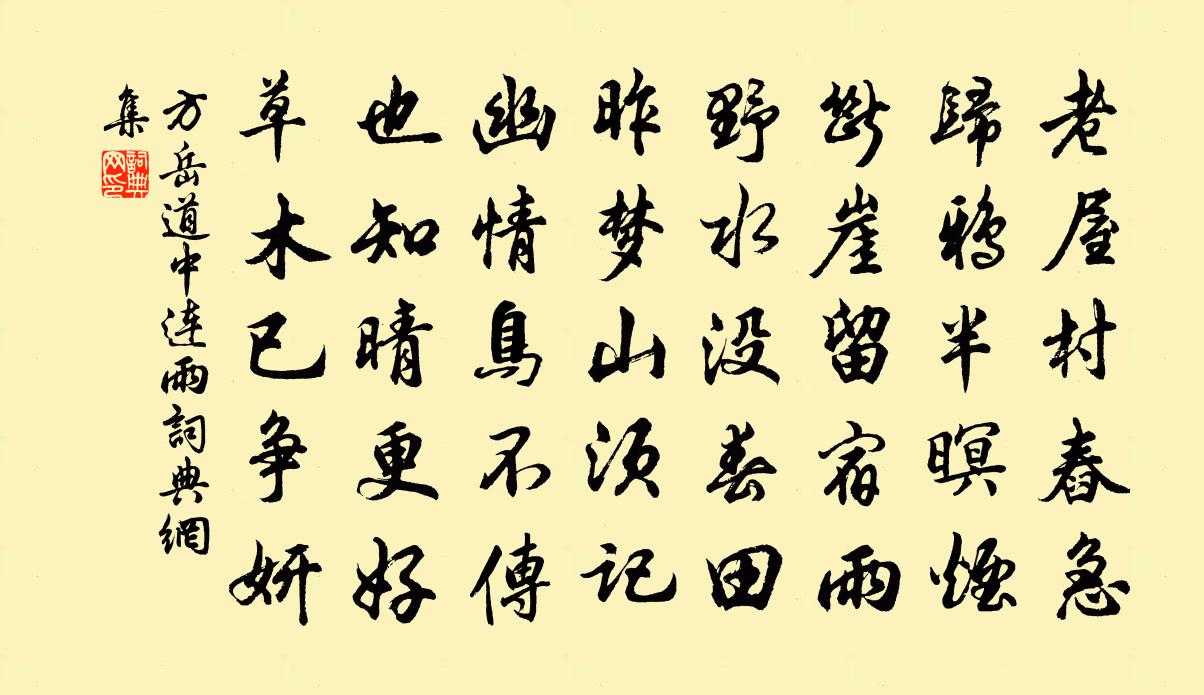 老屋村舂急
歸鴉半暝煙
斷崖留宿雨
野水没春田
昨梦山須記
幽情鳥不傳
也知晴更好
草木已争妍
方岳道中連雨詞典網
集
詞典網印